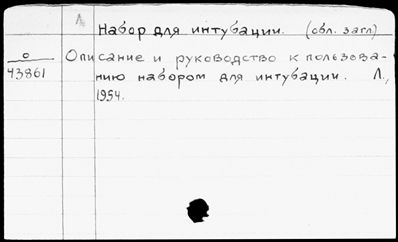 Л.
Набор для интубации. (обл. загл)
О
43861
Описание и руководство к пользова-
нию набором для интубации. Л.,
1954.